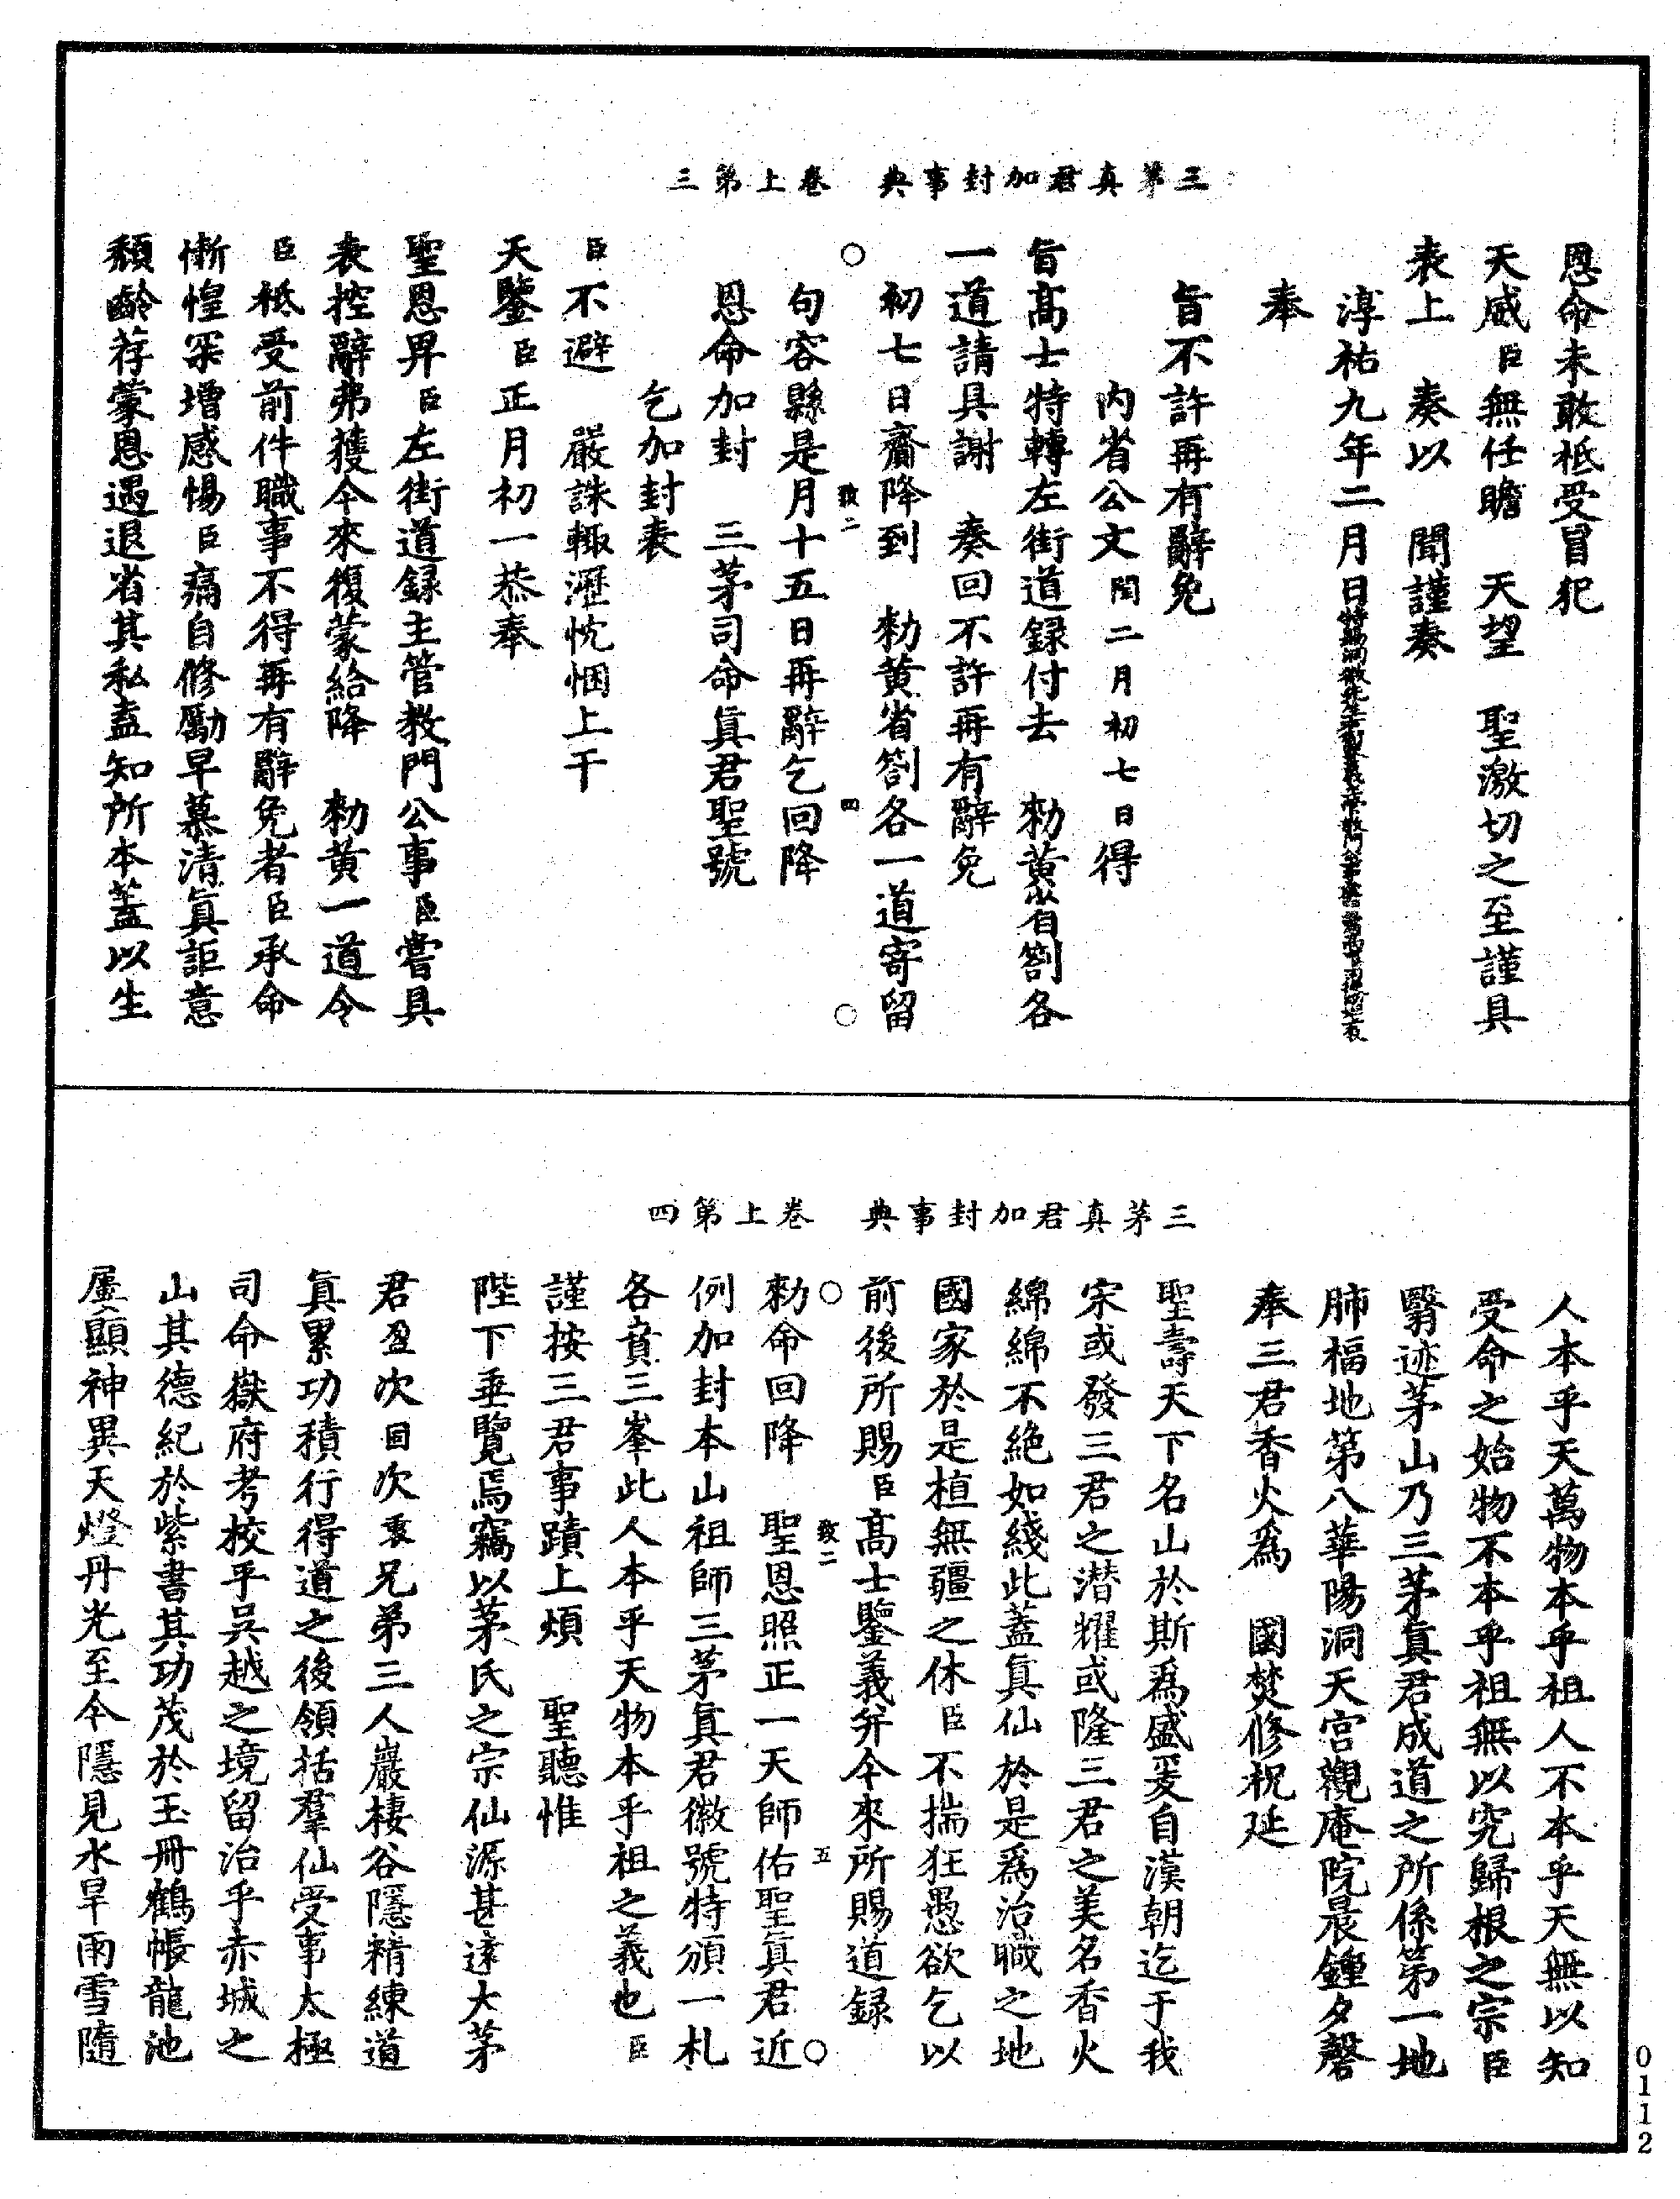 三茅真君加封事典　卷上第三
恩命未敢祗受冒犯
天威臣無任瞻　天望　聖激切之至謹具
表上　奏以　聞謹奏
淳祐九年二月日
奉
旨不許再有辭免
內省公文閏二月初七日得
旨高士特轉左街道録付去　勑黃省劄各
一道請具謝　奏回不許再有辭免
初七日齋降到　勑黃省劄各一道寄留
○　致二　四　○
句容縣是月十五日再辭乞回降
恩命加封　三茅司命眞君聖號
乞加封表
臣不避　嚴誅輙瀝忱悃上干
天鑒臣正月初一恭奉
聖恩畀臣左街道録主管教門公事臣嘗具
表控辭弗獲今來復蒙給降　勑黃一道令
臣祗受前件職事不得再有辭免者臣承命
慚惶罙增感惕臣痛自修勵早慕清眞詎意
頹齡荐蒙恩遇退省其私盍知所本蓋以生
三茅真君加封事典　卷上第四
人本乎天萬物本乎祖人不本乎天無以知
受命之始物不本乎祖無以究歸根之宗臣
翳迹茅山乃三茅眞君成道之所係第一地
肺福地第八華陽洞天宮觀庵院晨鍾夕磬
奉三君香火爲　國焚修祝延
聖壽天下名山於斯爲盛爰自漢朝迄于我
宋或發三君之潛耀或隆三君之美名香火
綿綿不絶如綫此蓋眞仙於是爲治職之地
國家於是植無疆之休臣不揣狂愚欲乞以
前後所賜臣高士鑒義并今來所賜道録
○　致二　五　○
勑命回降　聖恩照正一天師佑聖眞君近
例加封本山祖師三茅眞君徽號特頒一札
各賁三峯此人本乎天物本乎祖之義也臣
謹按三君事蹟上煩　聖聽惟
陛下垂覽焉竊以茅氏之宗仙源甚遠大茅
君盈次固次衷兄弟三人巖棲谷隱精練道
眞累功積行得道之後領括羣仙受事太極
司命嶽府考校乎吳越之境留治乎赤城之
山其德紀於紫書其功茂於玉冊鶴帳龍池
屢顯神異天燈丹光至今隱見水旱雨雪隨
0112